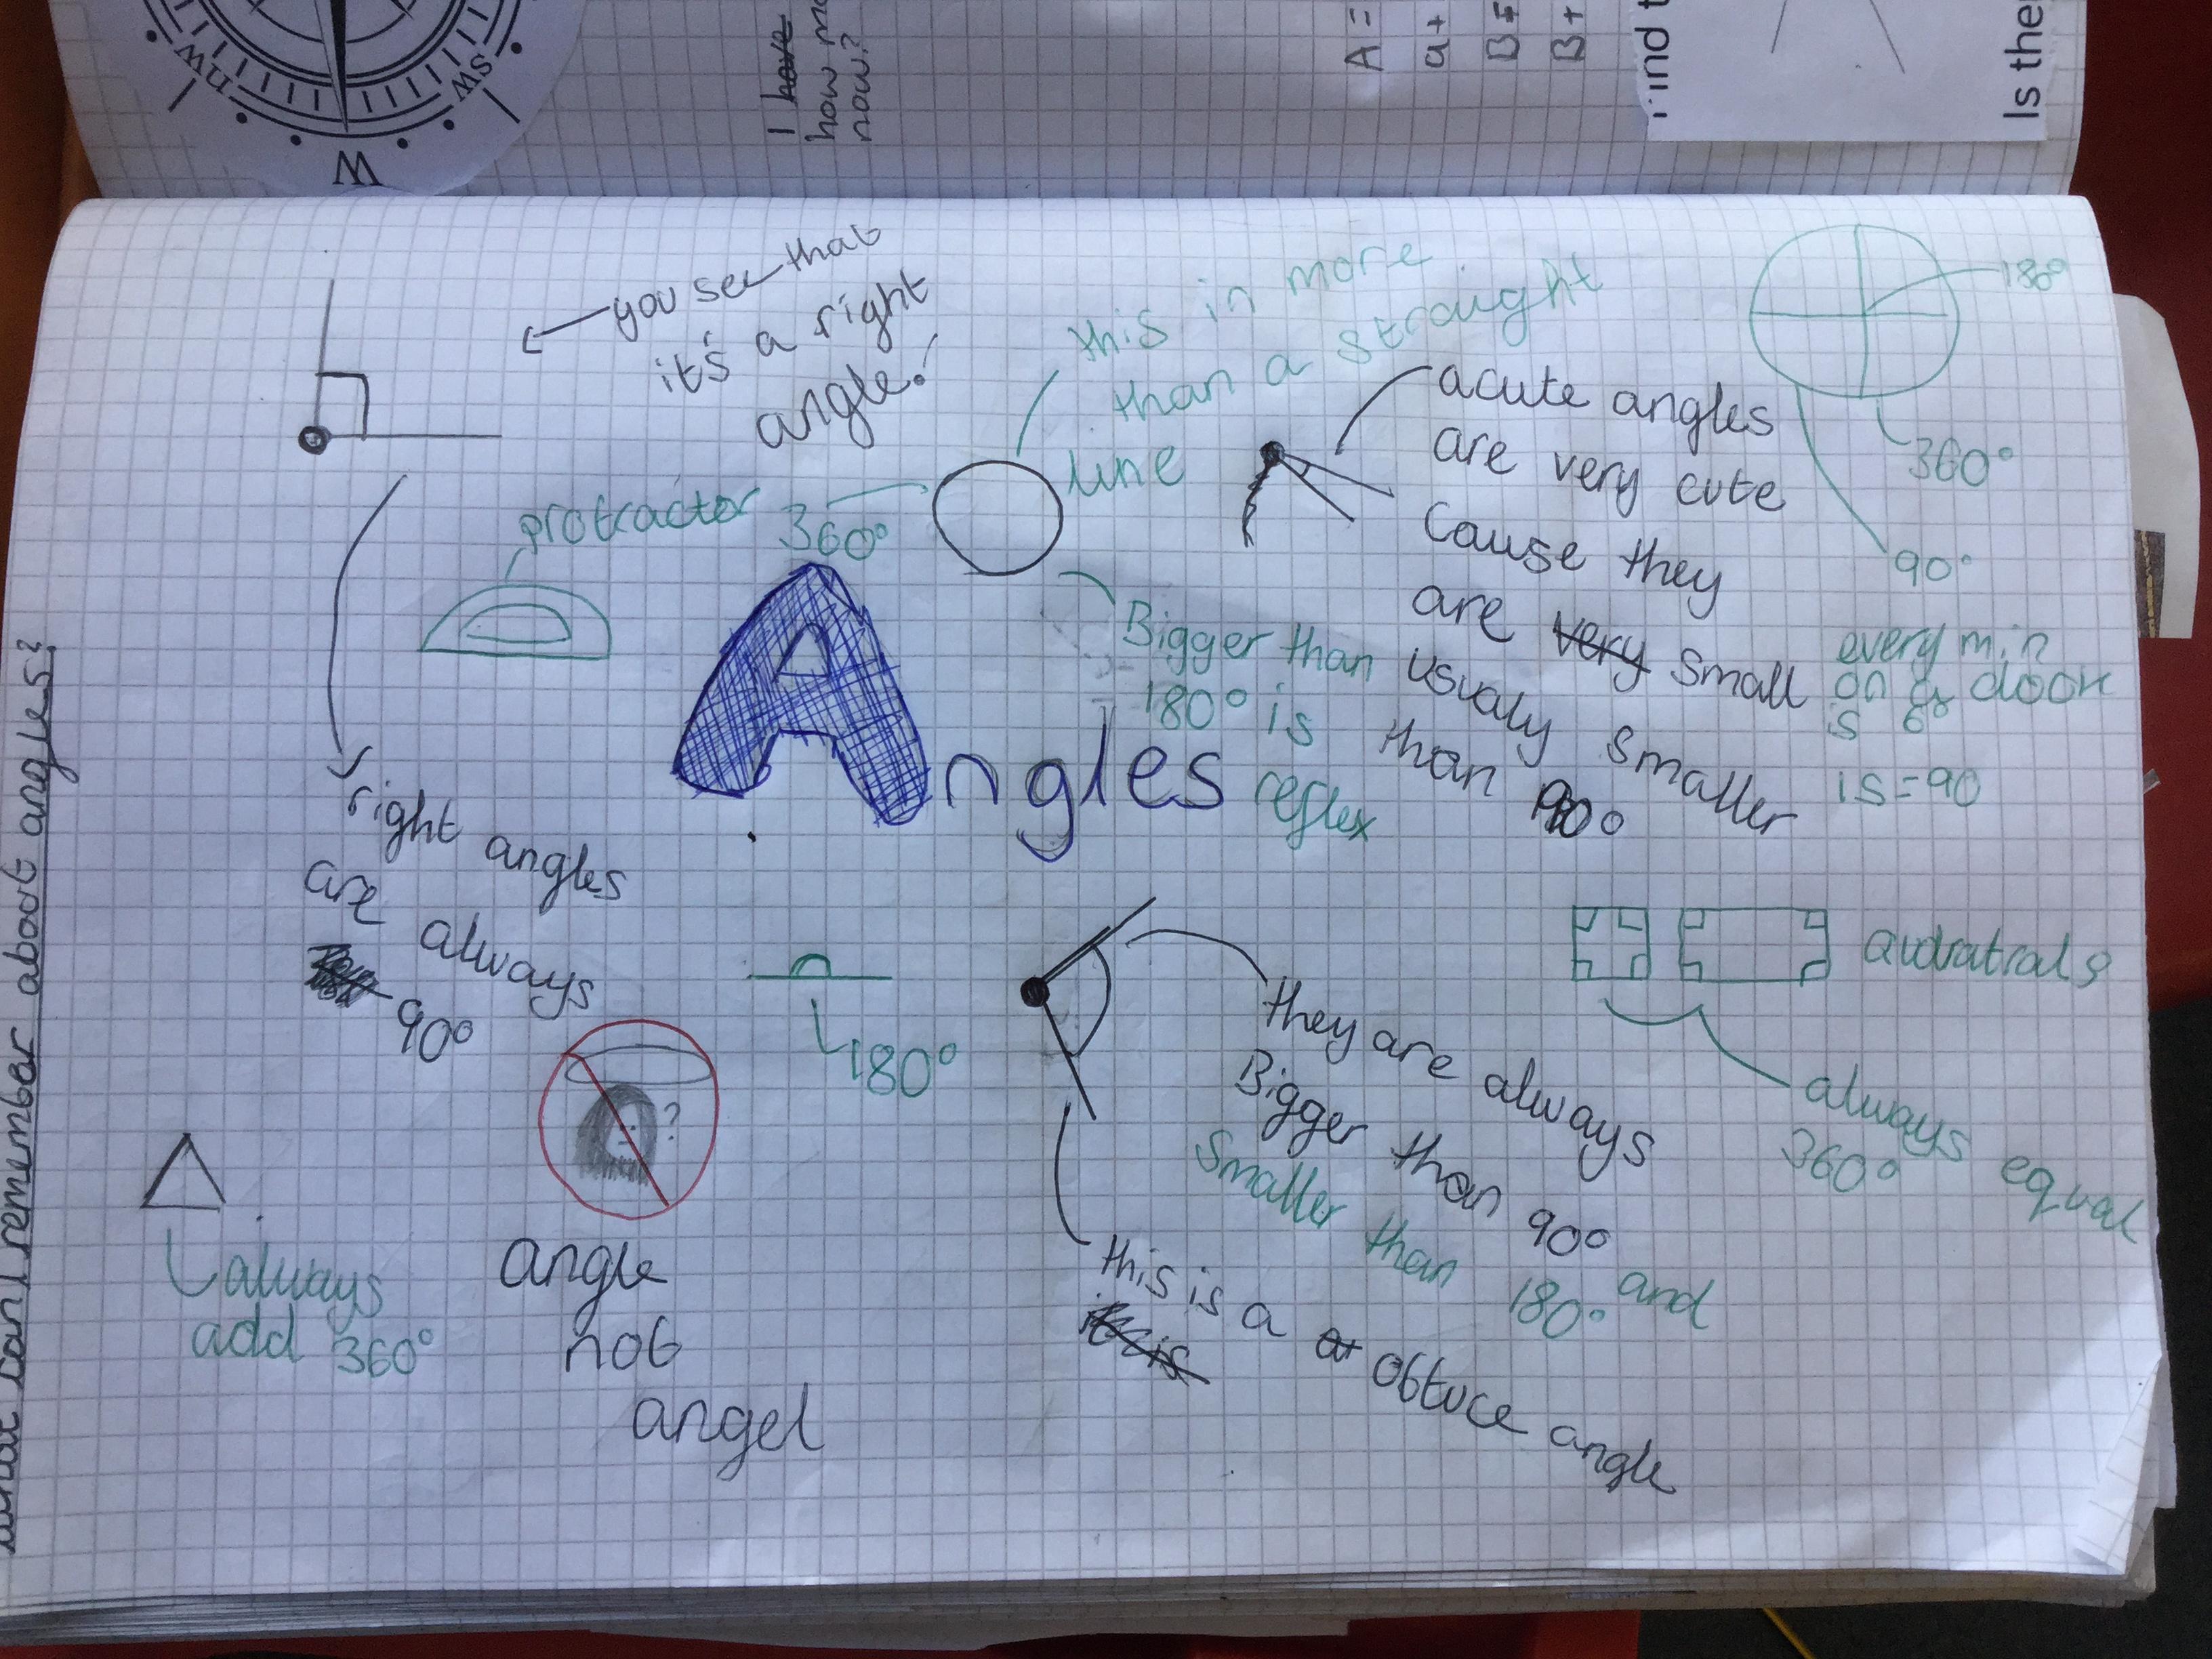 nw
W
SW
I have
how m
now?
A =
a+
B=
B+
Find t
Is ther
What can I remember about angles?
you see that
it's a right
angle!
this in more
than a straight
line
180°
360°
90°
acute angles
are very cute
Cause they
are very small
usualy smaller
than 90°
protracter
360°
Bigger than
180° is
reflex
every min
on a clock
is 6°
15=90
Angles
right angles
are always
90°
180°
they are always
Bigger than 90° and
smaller than 180°
this is a
obtuce angle
it is
qudratrals
always equal
360°
always
add 360°
?
angle
not
angel